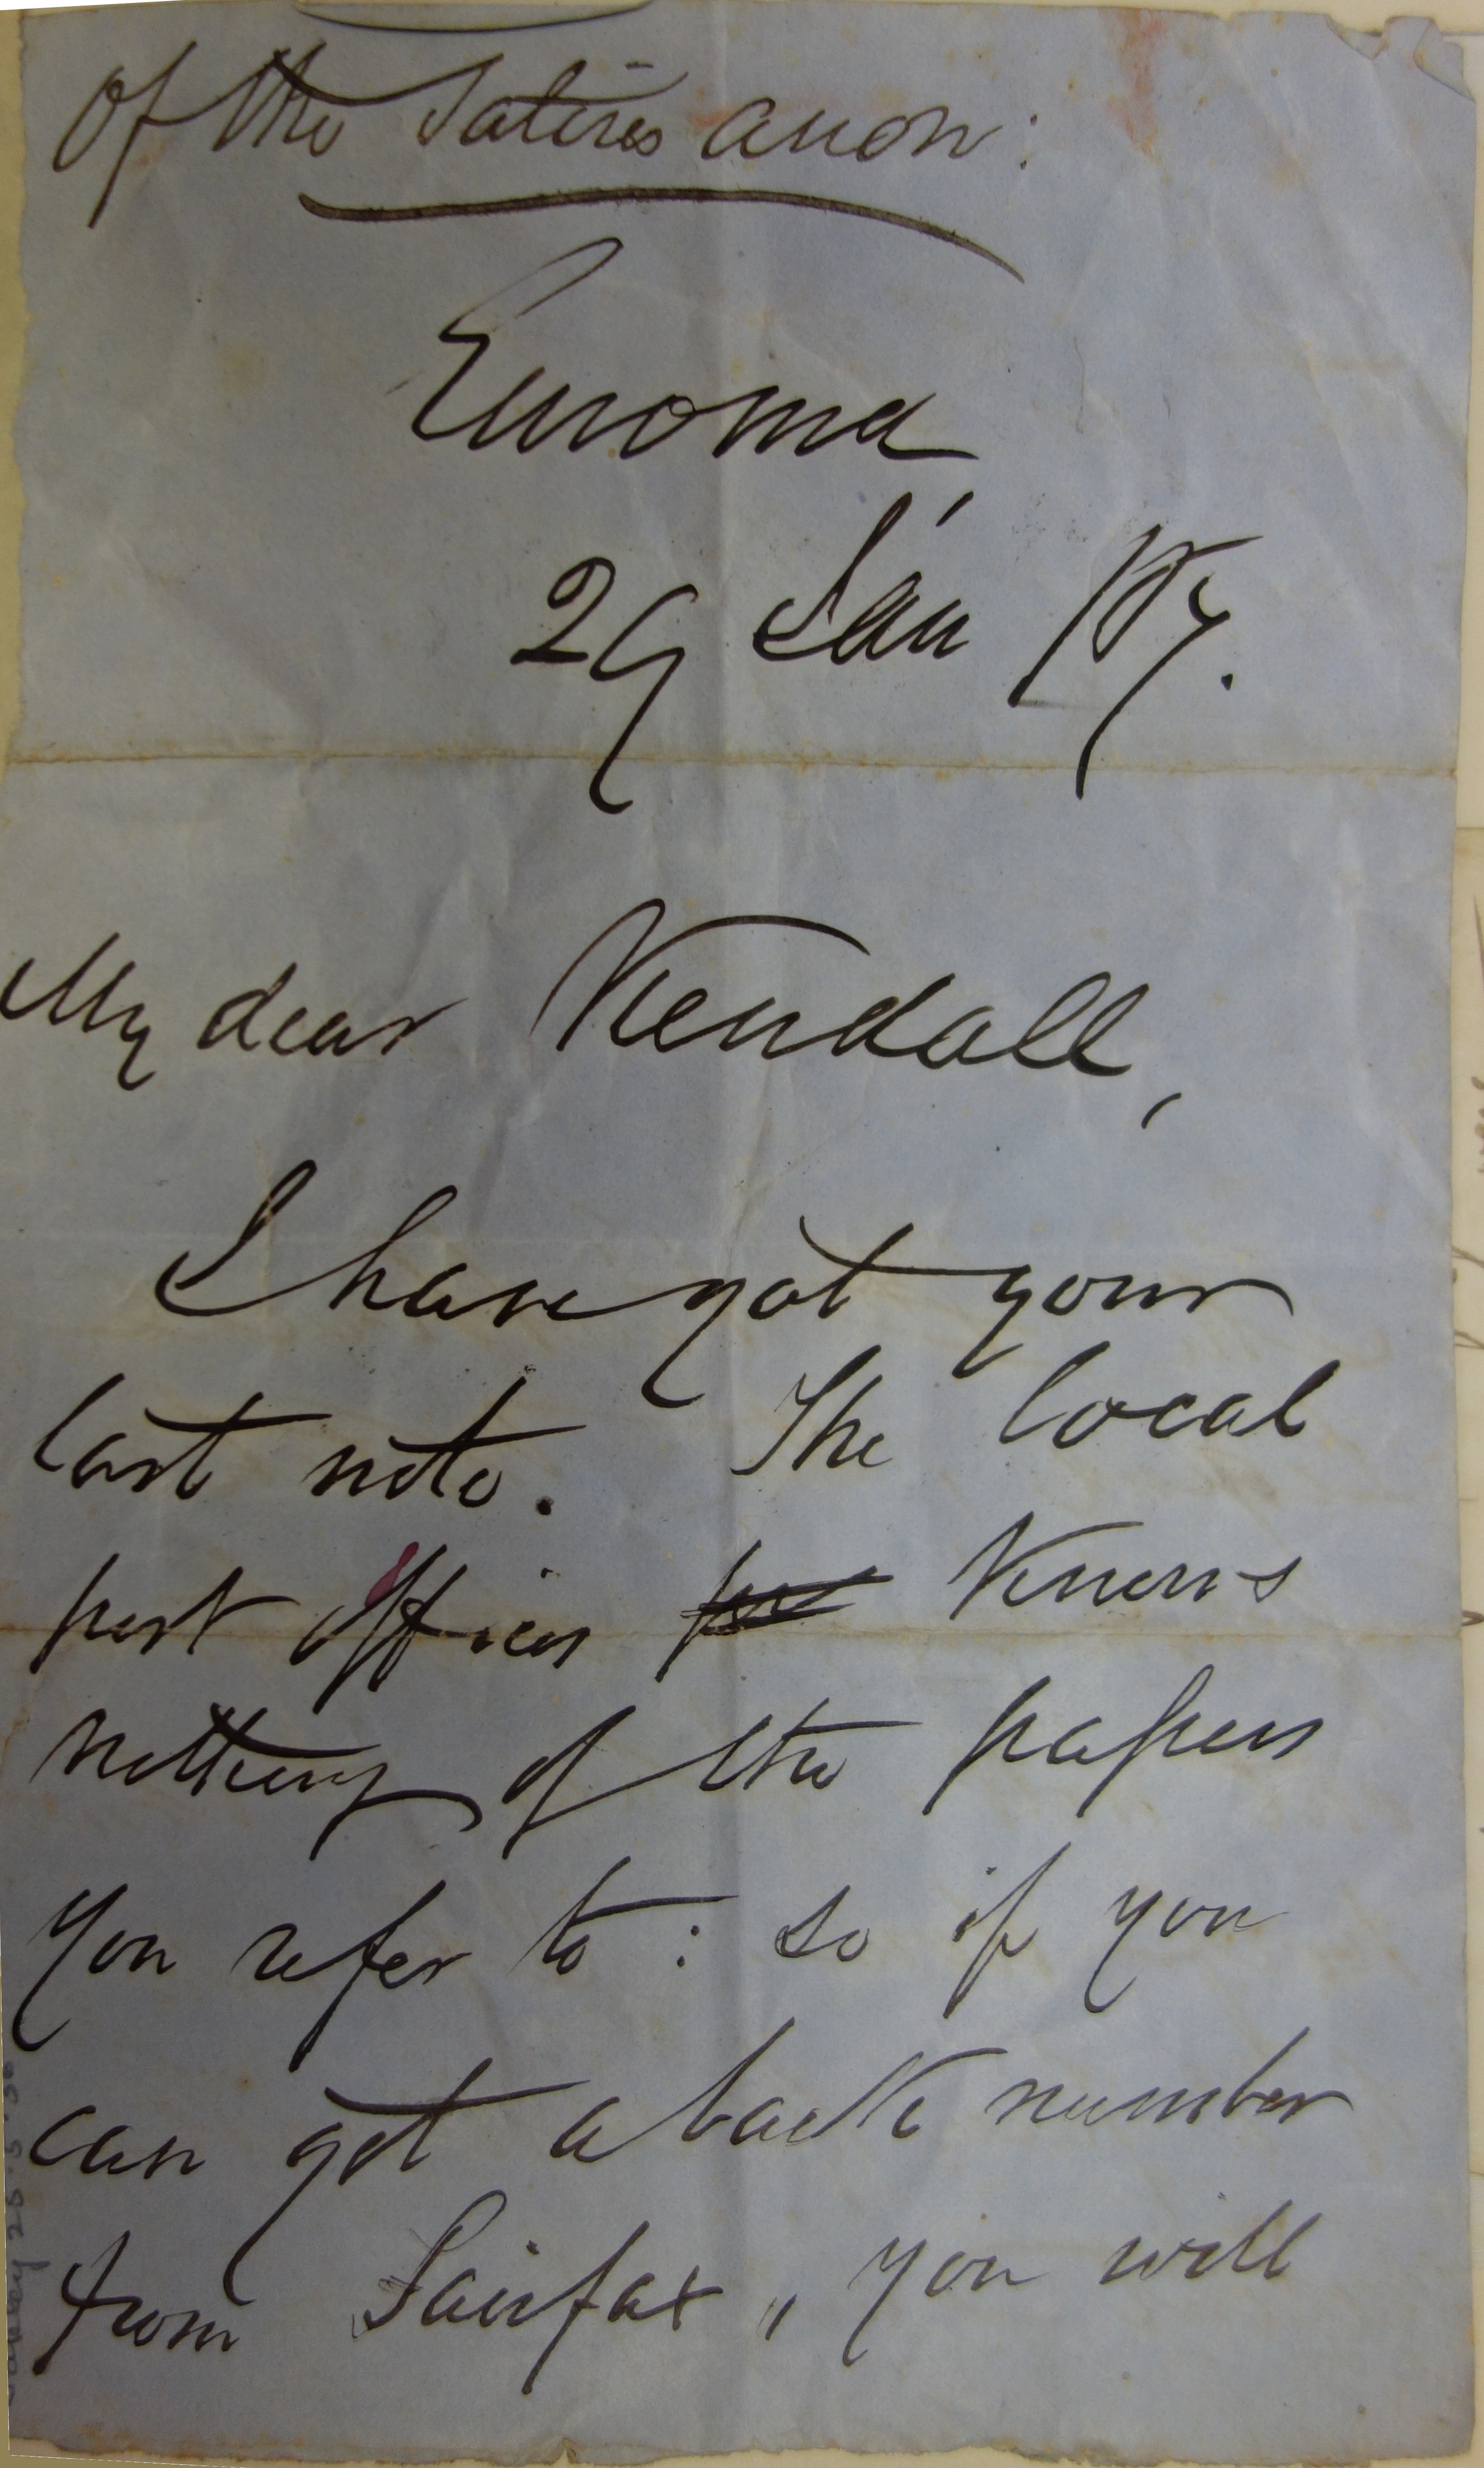 Of the Satires anon:
Euroma
29 Jan /67.
My dear Kendall,
I have got your
last note. The local
post officer knows
nothing of the papers
you refer to: so if you
can get a back number
from Fairfax, you will